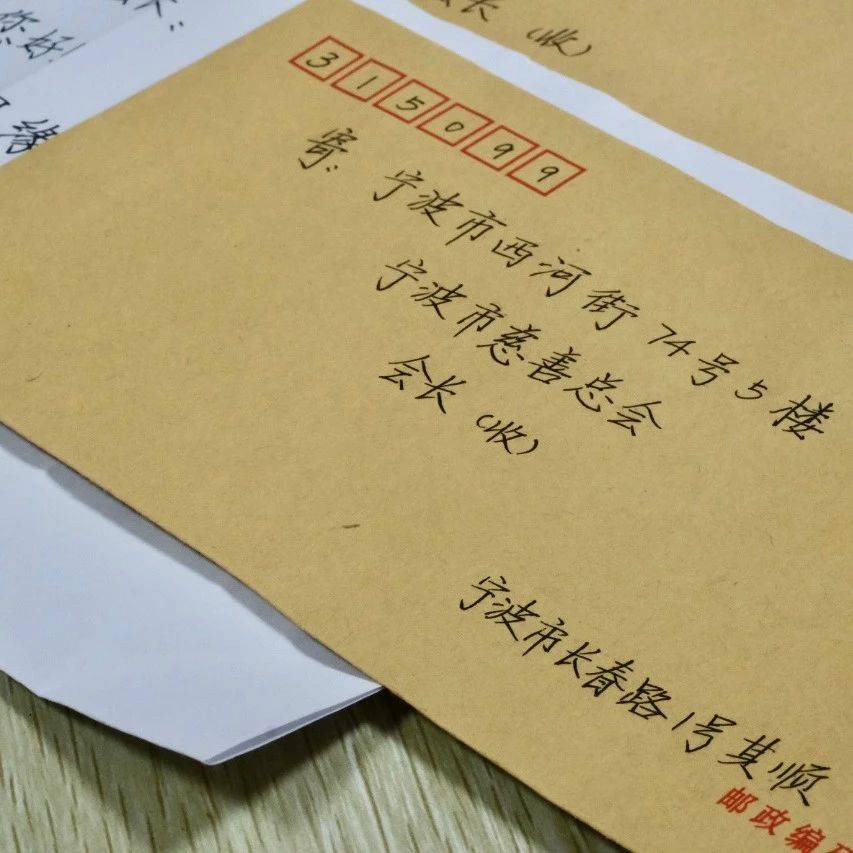 您好!
缘
会长(收)
315099
寄:宁波市西河街74号5楼
宁波市慈善总会
会长(收)
宁波市长春路1号其顺
邮政编码